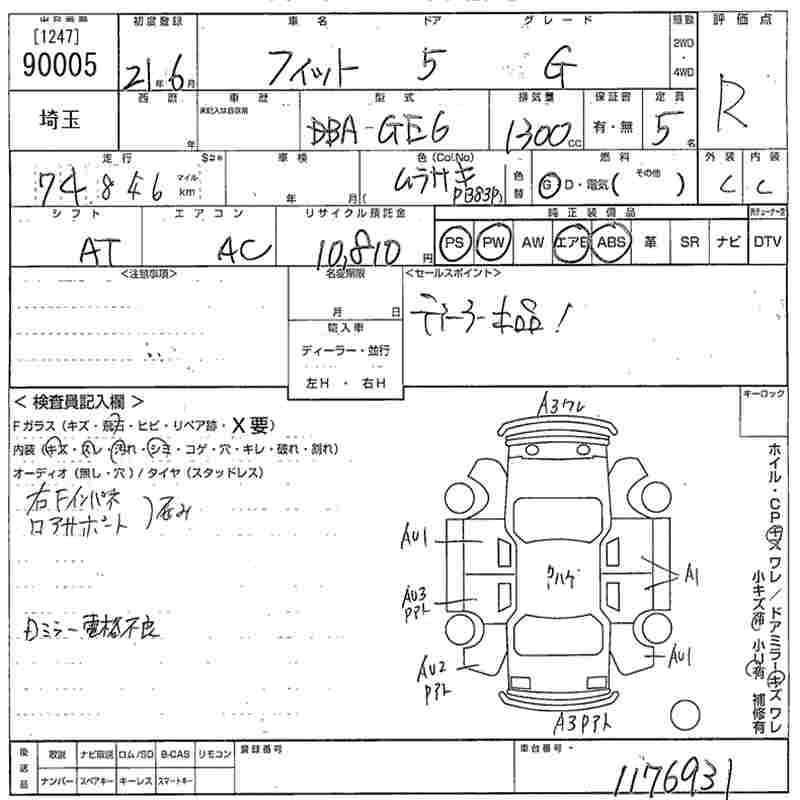 [1247]
90005
初度登録
21年6月
車名
フィット
ドア
5
グレード
G
駆動
2WD
4WD
評価点
R
埼玉
西暦
年
車歴
未記入は自家用
型式
DBA-GE6
排気量
1300cc
保証書
有・無
定員
5名
走行
74846
マイル
km
車検
年 月
色(Col.No)
ムラサキ
PB83P
色替
燃料
G・D・電気( その他 )
外装
C
内装
C
シフト
AT
エアコン
AC
リサイクル預託金
10,810円
純正装備品
PS PW AW エアB ABS 革 SR ナビ
DTV
<注意事項>
名変期限
月 日
輸入車
ディーラー・並行
左H・右H
<セールスポイント>
ディーラー出品!
<検査員記入欄>
キーロック
Fガラス(キズ・飛石・ヒビ・リペア跡・X要)
内装(キズ・スレ・汚れ・シミ・コゲ・穴・キレ・破れ・割れ)
オーディオ(無し・穴)/タイヤ(スタッドレス)
右Fインパネ
ロアサポート 歪み
Dミラー電格不良
A3ワレ
AU1
AU3
PPト
AU2
Pアト
クハゲ
A1
AU1
A3Pアト
ホイル・CPキズワレ/ドアミラーキズワレ
小キズ有 小U有 補修有
後送品
取説 ナビ取説 ロム/SD B-CAS リモコン
ナンバー スペアキー キーレス スマートキー
登録番号
車台番号
1176931